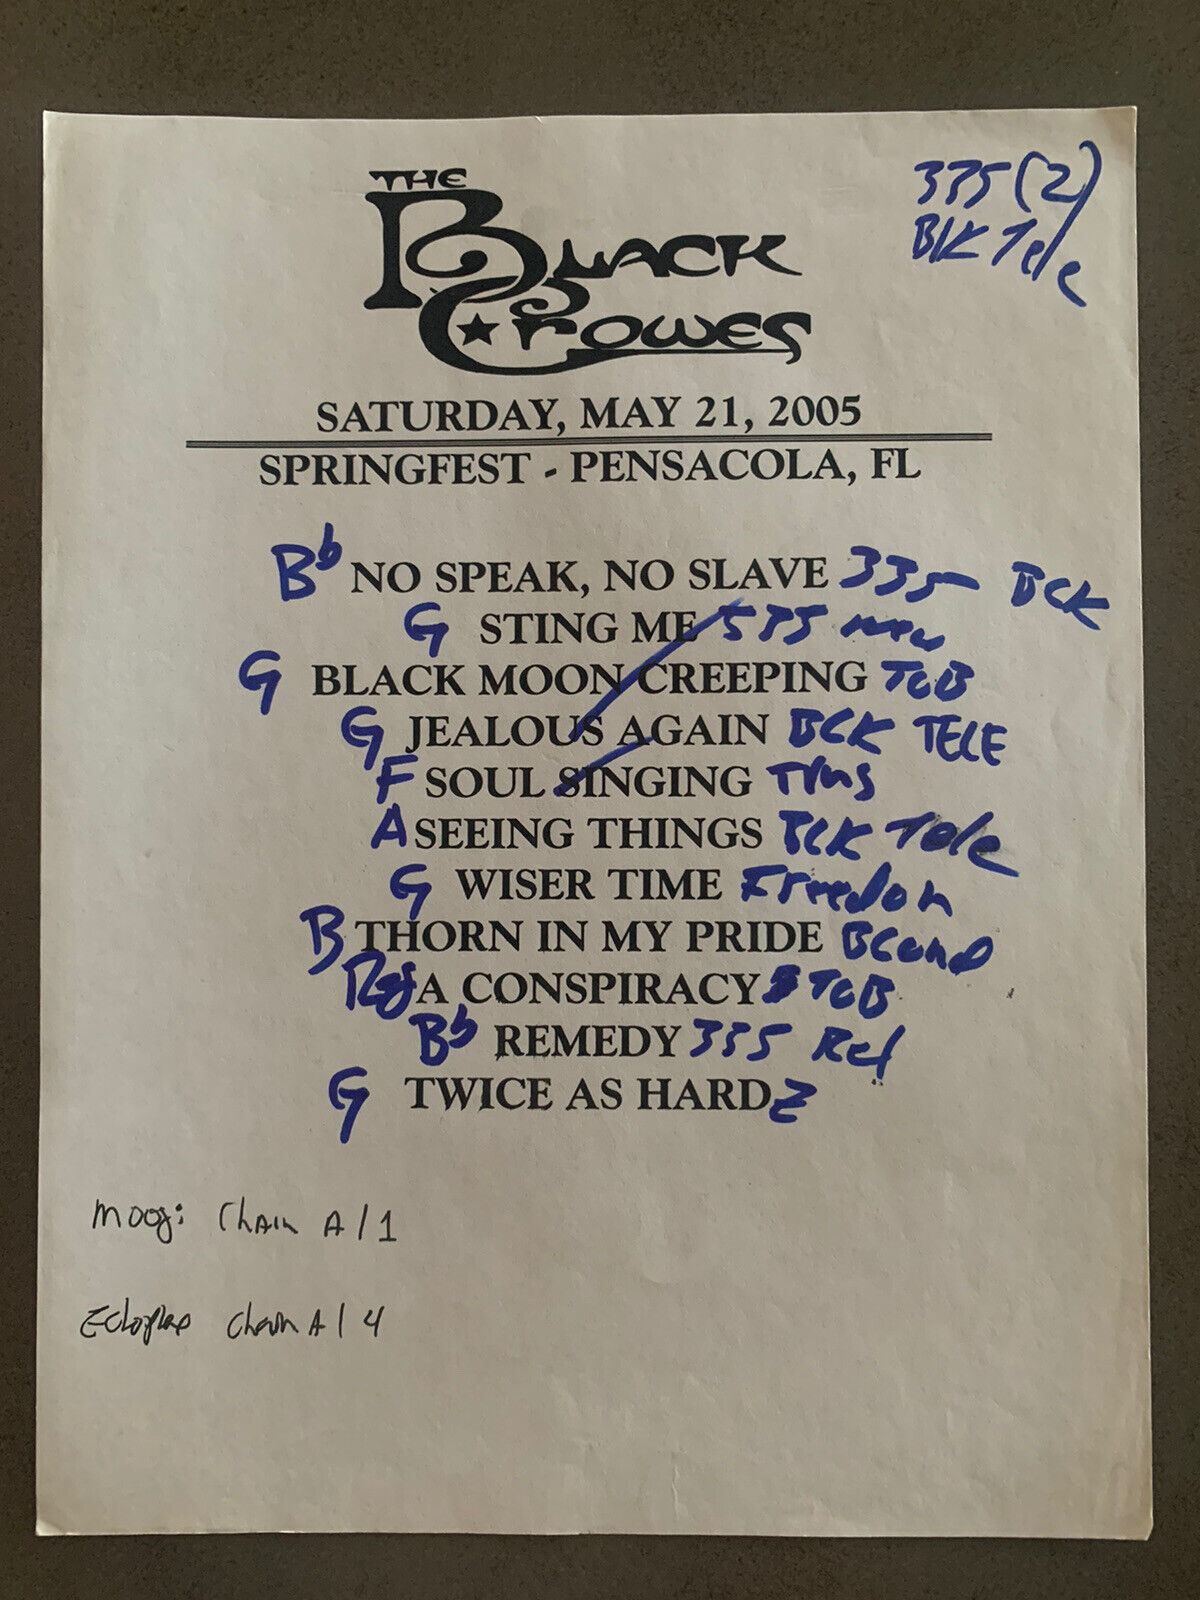 335 (2)
BLK Tele
THE
BLACK
CROWES
SATURDAY, MAY 21, 2005
SPRINGFEST - PENSACOLA, FL
Bb NO SPEAK, NO SLAVE 335 BLK
G STING ME 335
G BLACK MOON CREEPING TOB
G JEALOUS AGAIN BLK TELE
F SOUL SINGING
A SEEING THINGS BLK Tele
G WISER TIME Freedom
B THORN IN MY PRIDE BLOND
Reg A CONSPIRACY TOB
Bb REMEDY 335 Red
G TWICE AS HARD Z
Moog: Chain A/1
Chain A/4